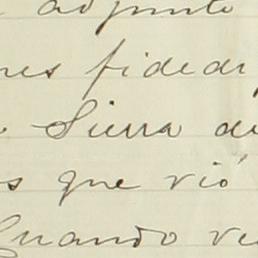 adjunto
res fided
Sierra de
s que vió
Cuando ve